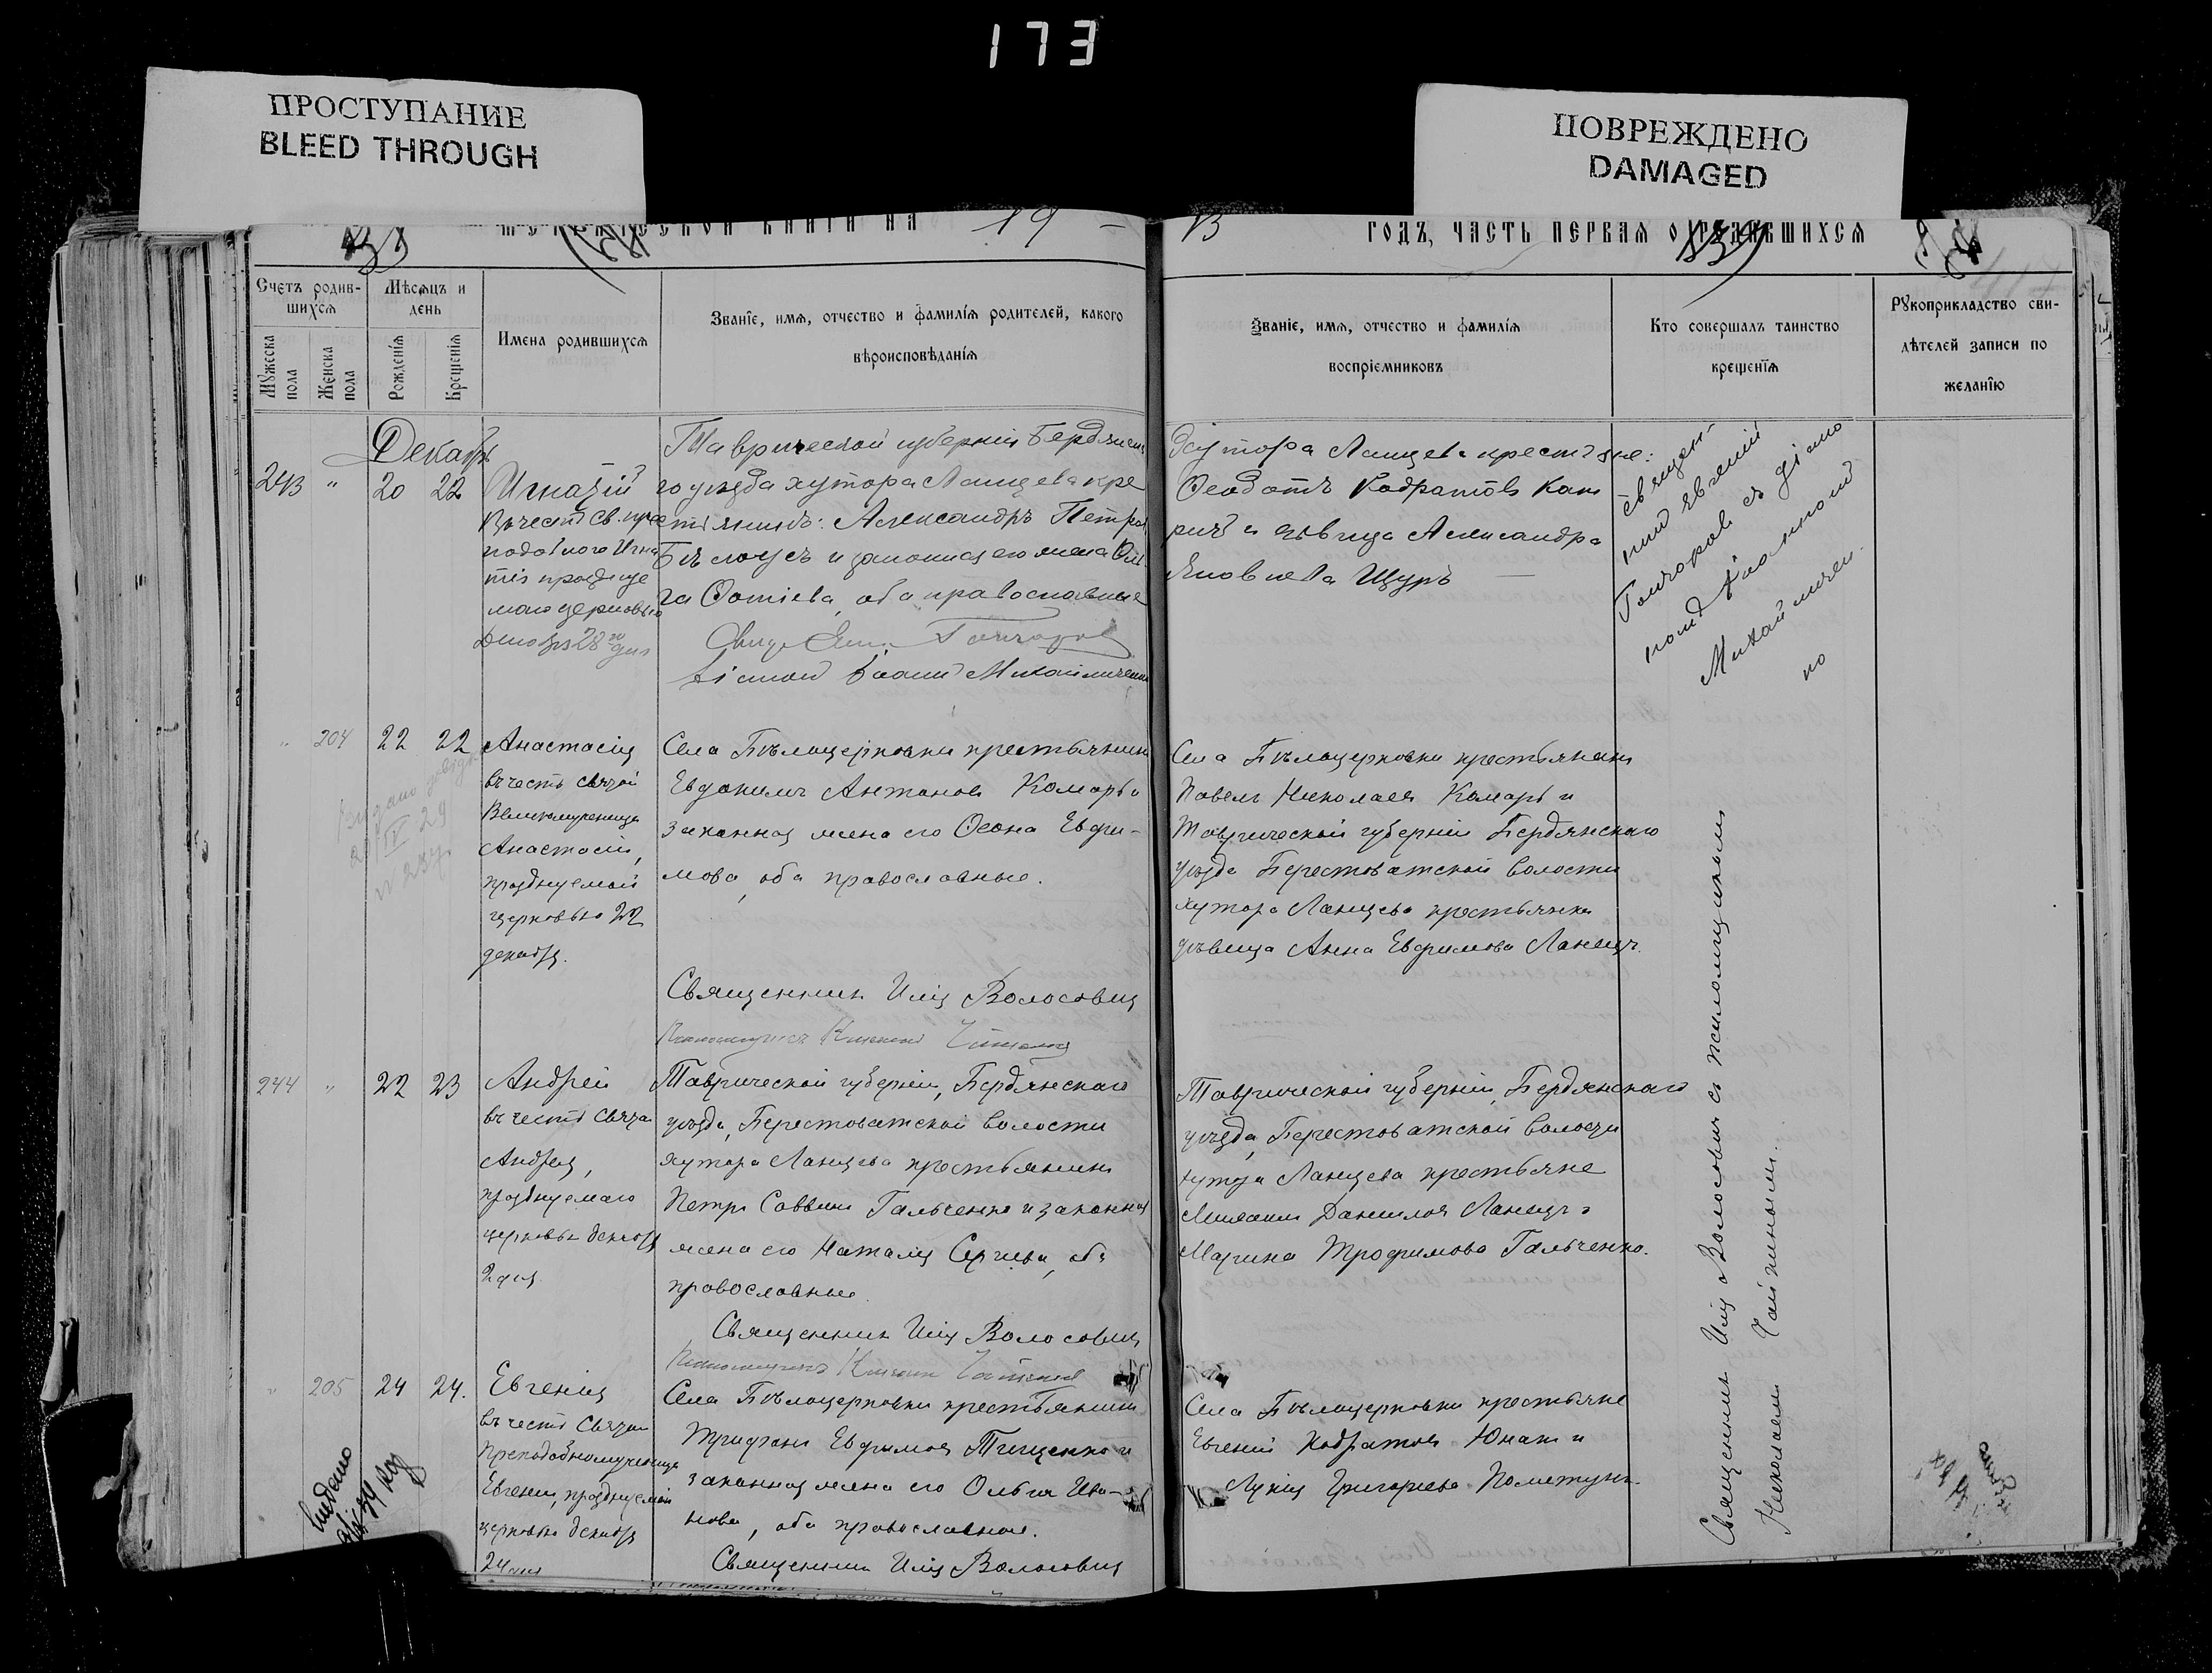 173
ПРОСТУПАНИЕ
BLEED THROUGH
ПОВРЕЖДЕНО
DAMAGED
19 –
13
годъ, часть первая о родившихся
Счетъ родив-
шихся
Мужеска
пола
Женска
пола
Мѣсяцъ и
день
Рожденія
Крещенія
Имена родившихся
Званіе, имя, отчество и фамилія родителей, какого
вѣроисповѣданія
Званіе, имя, отчество и фамилія
воспріемниковъ
Кто совершалъ таинство
крещенія
Рукоприкладство сви-
дѣтелей записи по
желанію
Декабрь
243 " 20 22
Игнатій
въ честь св. пре
подобного Игна
тія празднуе
маго церковью
Декабря 28го дня
Таврической губерніи Бердянска
го уѣзда хутора Ланцева кре
стьянинъ: Александръ Петров
Бѣлоусъ и законная его жена Оль
га Фотіева, оба православные
Гончаров
Діаконъ Іоанн Михайличенко
Хутора Ланцева крестьяне:
Феодотъ Кодратовъ
и дѣвица Александра
Яковлева Щуръ —
Священ-
ник Евгеній
Гончаров съ діако
ном Іоанном
Михайличен
ко
" 204 22 22
Анастасія
въ честь святой
Великомученицы
Анастасіи,
празднуемой
церковью 22
декабря.
Села Бѣлоцерковки крестьянинъ
Евдокимъ Антоновъ Комарь и
законная жена его Феона Евфи-
мова, оба православные.
Священникъ Илія Волосовичъ
Села Бѣлоцерковки крестьянинъ
Павелъ Николаевъ Комарь и
Таврической губерніи Бердянскаго
уѣзда Берестоватской волости
хутора Ланцева крестьянка
дѣвица Анна Евфимова Ланецъ.
244 " 22 23
Андрей
въ честь святаго
Андрея,
празднуемаго
церковью декабря
2 дня.
Таврической губерніи, Бердянскаго
уѣзда, Берестоватской волости
хутора Ланцева крестьянинъ
Петръ Саввинъ Гальченко и законная
жена его Наталія Сергіева, оба
православные.
Священникъ Илія Волосовичъ
Таврической губерніи, Бердянскаго
уѣзда, Берестоватской волости
хутора Ланцева крестьяне
Даниловъ Ланецъ и
Марина Трофимова Гальченко.
" 205 24 24.
Евгенія
въ честь святой
Преподобномученицы
Евгеніи, празднуемой
церковью декабря
24 дня
Села Бѣлоцерковки крестьянинъ
Трифонъ Евфимовъ Тищенко и
законная жена его Ольга Ива-
нова, оба православные.
Священникъ Илія Волосовичъ
Села Бѣлоцерковки крестьяне
Евгеній Кодратовъ Юнакъ и
Лукія Григорьева
Священникъ Илія Волосовичъ съ псаломщикомъ
Николаемъ